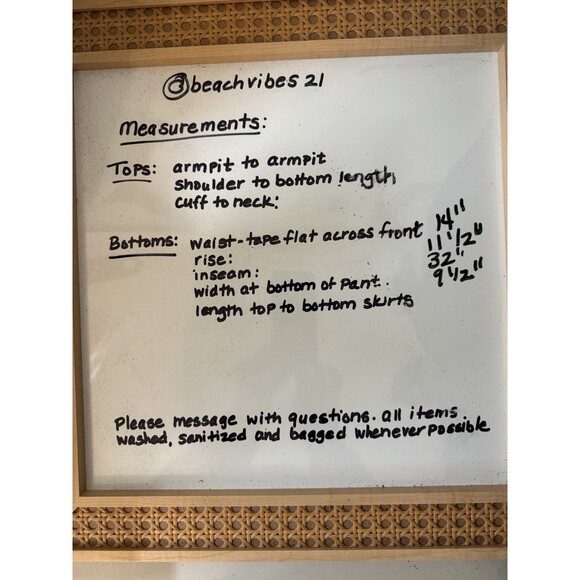 @beachvibes 21
Measurements:
Tops: armpit to armpit
shoulder to bottom length
cuff to neck:
Bottoms: waist-tape flat across front 14"
rise: 11 1/2"
inseam: 32"
width at bottom of pant: 9 1/2"
length top to bottom skirts
Please message with questions. all items
washed, sanitized and bagged whenever possible